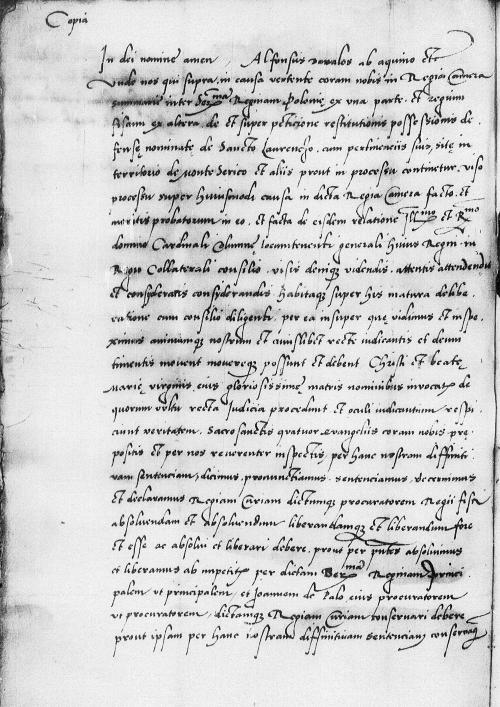 Copia
In dei nomine amen, Alfonsus davalos ab aquino etc
Unde nos qui supra, in causa vertente coram nobis in Regia Camera
summarie inter Ser.ma Reginam Polonię ex una parte, et regium
fiscum ex altera, de et super petitione restitutionis possessionis de
fensę nominatę de Sancto Laurenczo, cum pertinenciis suis, sitę in
territorio de Monte Serico et aliis prout in processu continetur, viso
processu super huiusmodi causa in dicta Regia Camera facto, et
meritis probatorum in eo, et facta de eisdem relatione Ill.mo et R.mo
domino Cardinali Columnę locumtenenti generali huius Regni in
Regio Collaterali consilio, visis denique videndis, attentis attendendis
et consyderatis consyderandis habitaque super his matura delibe
ratione cum consilio diligenti, per ea insuper quę vidimus et inspe
ximus animumque nostrum et cuiuslibet recte iudicantis et deum
timentis movent movereque possunt et debent Christi et beatę
Marię virginis eius gloriosissimę matris nominibus invocatis de
quorum vultu recta iudicia procedunt et oculi iudicantium respi
ciunt veritatem, Sacrosanctis quatuor evangeliis coram nobis prę
positis et per nos reverenter inspectis, per hanc nostram diffiniti
vam sentenciam, dicimus, pronunctiamus, sentenciamus, decernimus
et declaramus Regiam Curiam dictumque procuratorem Regii fisci
absolvendam et absolvendum liberandamque et liberandum fore
et esse ac absolvi et liberari debere, prout per pntes absolvimus
et liberamus ab impetitis per dictam Ser.ma Reginam princi
palem ut principalem, et Joannem de Palo eius procuratorem
ut procuratorem, dictamque Regiam Curiam conservari debere
prout ipsam per hanc nostram diffinitivam sentenciam conservamus